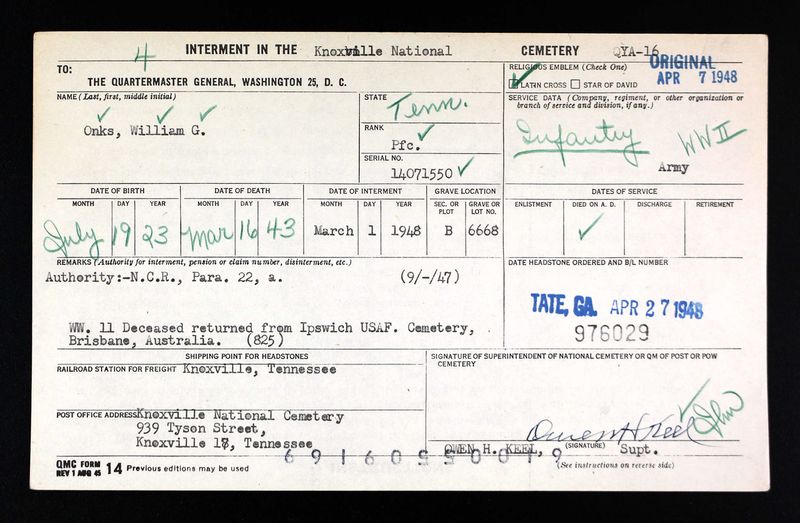 4
INTERMENT IN THE Knoxville National CEMETERY QYA-16
ORIGINAL
APR 7 1948
TO:
THE QUARTERMASTER GENERAL, WASHINGTON 25, D. C.
RELIGIOUS EMBLEM (Check One)
LATIN CROSS STAR OF DAVID
NAME (Last, first, middle initial)
Onks, William G.
STATE
Tenn.
RANK
Pfc.
SERIAL NO.
14071550
SERVICE DATA (Company, regiment, or other organization or
branch of service and division, if any.)
Infantry WW II
Army
DATE OF BIRTH DATE OF DEATH DATE OF INTERMENT GRAVE LOCATION DATES OF SERVICE
MONTH DAY YEAR MONTH DAY YEAR MONTH DAY YEAR SEC. OR PLOT GRAVE OR LOT NO. ENLISTMENT DIED ON A. D. DISCHARGE RETIREMENT
July 19 23 Mar 16 43 March 1 1948 B 6668
REMARKS (Authority for interment, pension or claim number, disinterment, etc.)
Authority:-N.C.R., Para. 22, a. (9/-/47)
WW. 11 Deceased returned from Ipswich USAF. Cemetery,
Brisbane, Australia. (825)
DATE HEADSTONE ORDERED AND B/L NUMBER
TATE, GA. APR 27 1948
976029
SHIPPING POINT FOR HEADSTONES
RAILROAD STATION FOR FREIGHT Knoxville, Tennessee
POST OFFICE ADDRESS Knoxville National Cemetery
939 Tyson Street,
Knoxville 17, Tennessee
SIGNATURE OF SUPERINTENDENT OF NATIONAL CEMETERY OR QM OF POST OR POW
CEMETERY
Owen H Keel
OWEN H. KEEL, (SIGNATURE) Supt.
(See instructions on reverse side)
QMC FORM
REV 1 AUG 45 14 Previous editions may be used